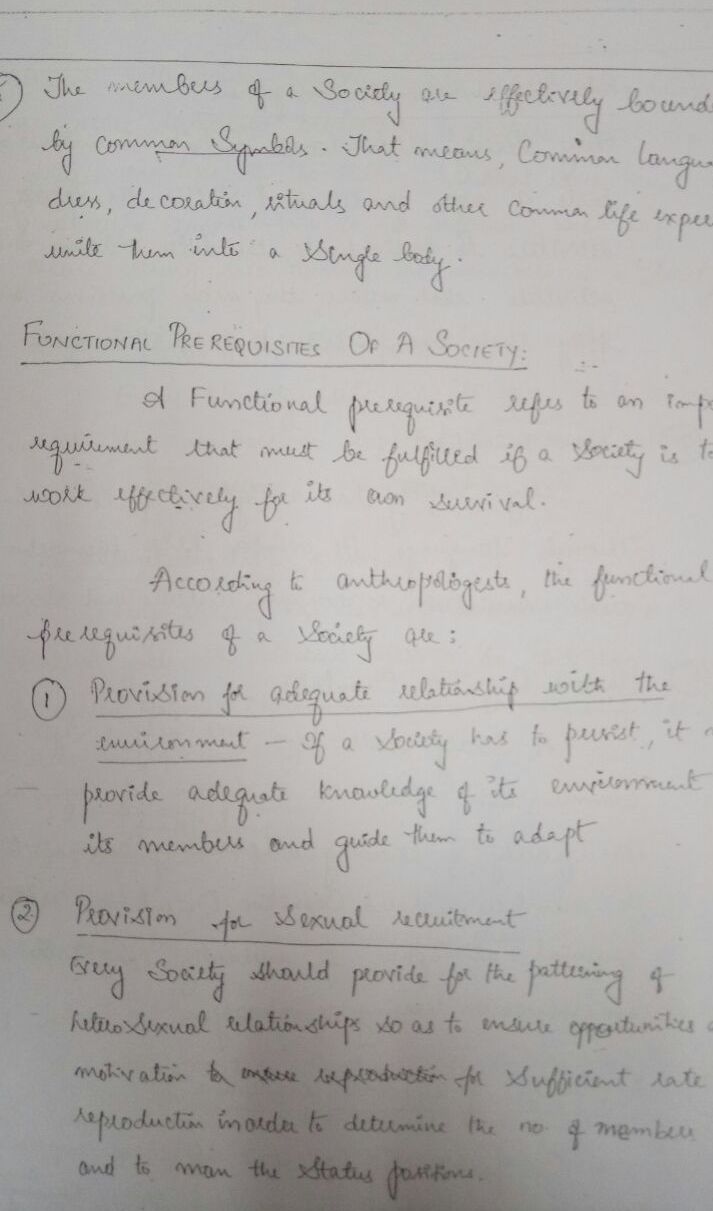 The members of a Society are effectively bound
by common Symbols. That means, Common langu
dress, decoration, rituals and other common life exper
unite them into a Single body.
FUNCTIONAL PREREQUISITES OF A SOCIETY:
A Functional prerequisite refers to an imp
requirement that must be fulfilled if a Society is to
work effectively for its own survival.
According to anthropologests, the functional
prerequisites of a Society are:
① Provision for adequate relationship with the
environment – If a Society has to persist, it
provide adequate knowledge of its environment
its members and guide them to adapt
② Provision for Sexual recruitment
Every Society should provide for the patterning of
heteroSexual relationships so as to ensure opportunities
motivation for Sufficient rate
reproduction inorder to determine the no. of members
and to man the Status positions.